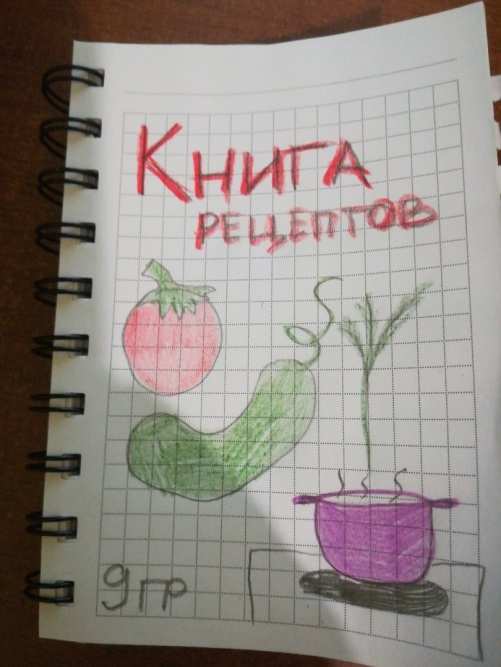 Книга
рецептов
9гр